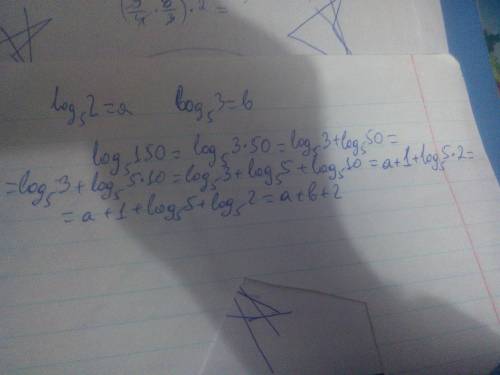 (5/4 · 8/3) · 2 =
log₅2 = a log₅3 = b
log₅150 = log₅3·50 = log₅3 + log₅50 =
= log₅3 + log₅5·10 = log₅3 + log₅5 + log₅10 = a + 1 + log₅5·2 =
= a + 1 + log₅5 + log₅2 = a + b + 2